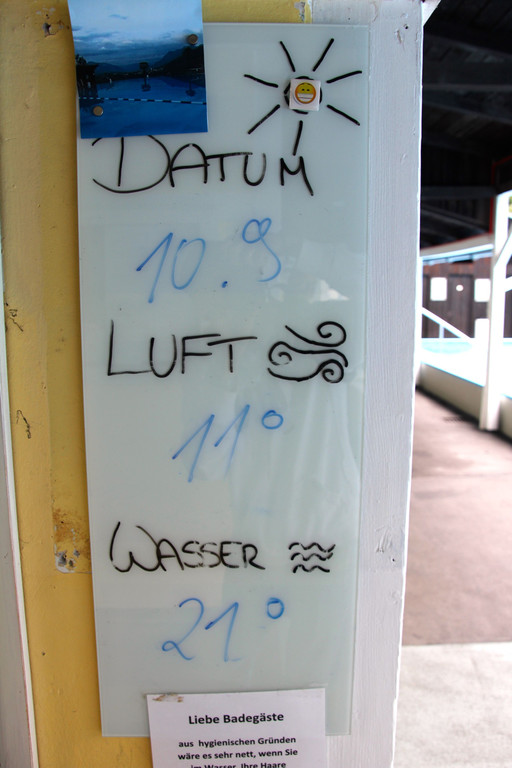 DATUM
10.9
LUFT
11°
WASSER
21°
Liebe Badegäste
aus hygienischen Gründen
wäre es sehr nett, wenn Sie
im Wasser, Ihre Haare